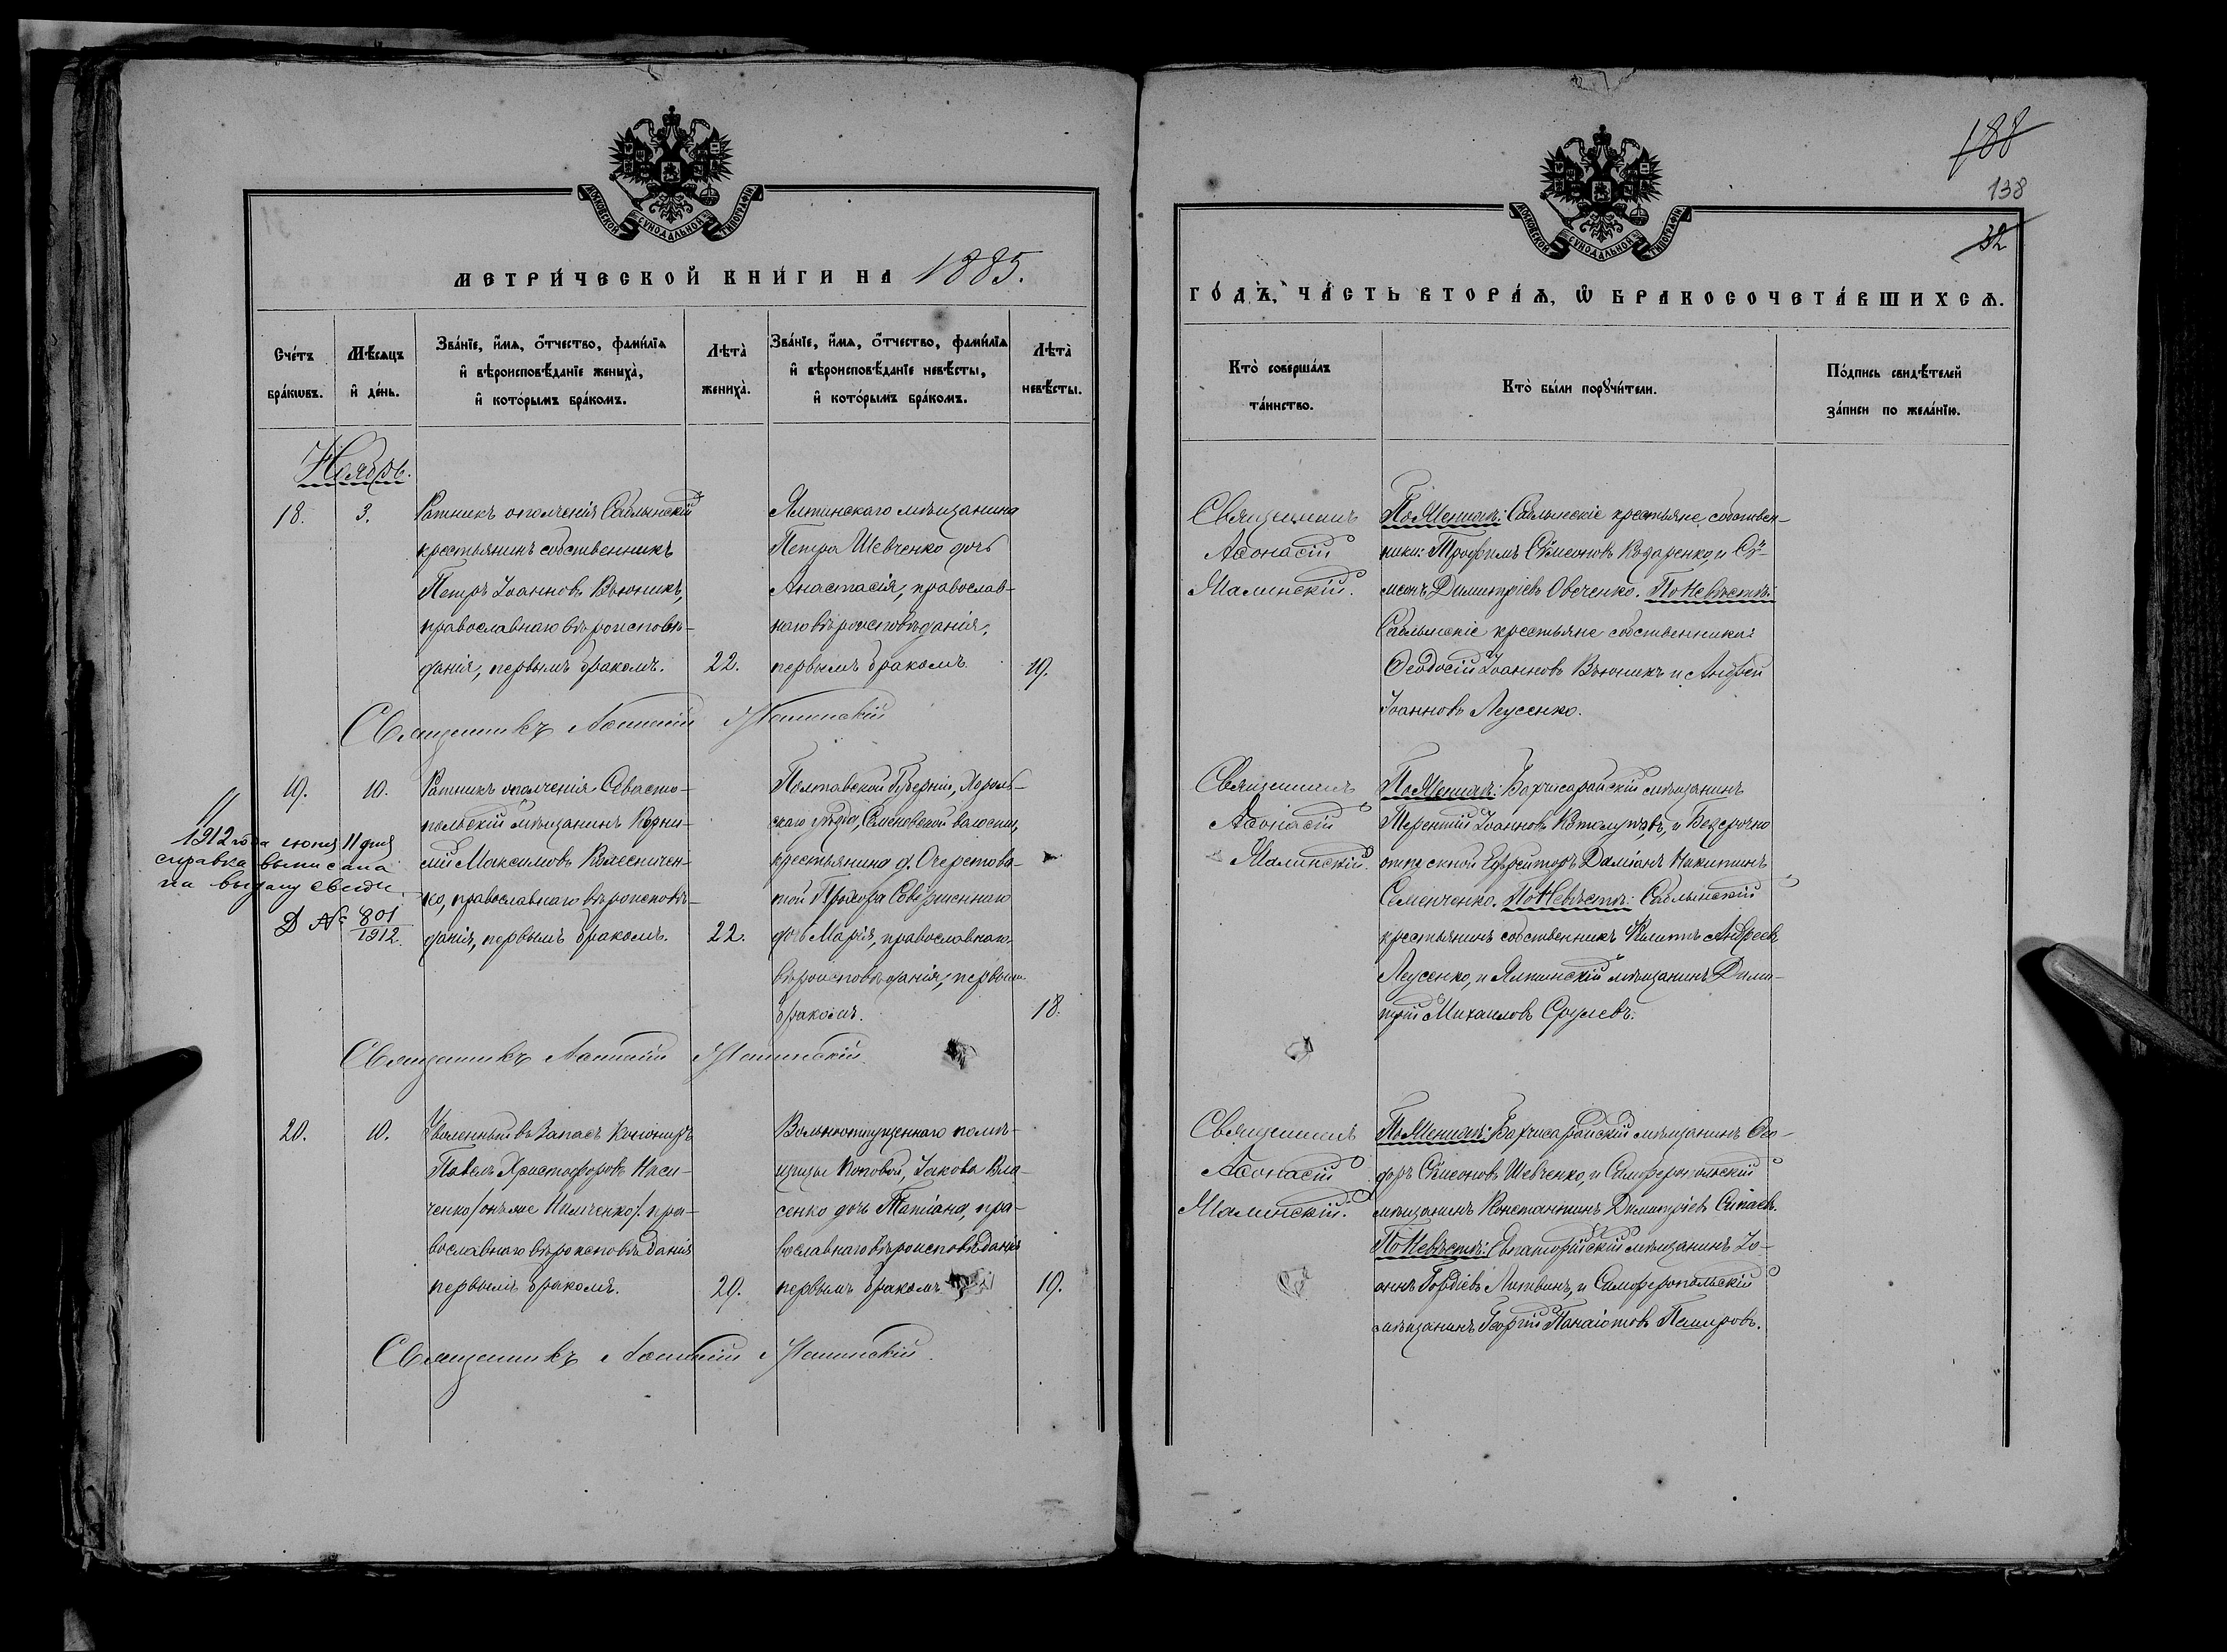 188
138
32
МОСКОВСКОЙ СѴНОДАЛЬНОЙ ТИПОГРАФІИ
МОСКОВСКОЙ СѴНОДАЛЬНОЙ ТИПОГРАФІИ
МЕТРИ́ЧЕСКОЙ КНИ́ГИ НА 1885.
Сче́тъ бра́кωвъ.
Мѣ́сяцъ и҆ де́нь.
Зва́нїе, и҆́мѧ, ѻ҆́тчество, фами́лїѧ
и҆ вѣроисповѣ́данїе жениха̀,
и҆ кото́рымъ бра́комъ.
Лѣта̀ жениха̀.
Зва́нїе, и҆́мѧ, ѻ҆́тчество, фами́лїѧ
и҆ вѣроисповѣ́данїе невѣ́сты,
и҆ кото́рымъ бра́комъ.
Лѣта̀ невѣ́сты.
Ноябрь.
18.
3.
Ратникъ ополченія Саблынскій
крестьянинъ собственникъ
Петръ Іоанновъ Вьюникъ,
православнаго вѣроисповѣ-
данія, первымъ бракомъ.
22.
Ялтинскаго мѣщанина
Петра Шевченко дочь
Анастасія, православ-
наго вѣроисповѣданія,
первымъ бракомъ.
19.
Священникъ Аѳанасій Малинскій
19.
10.
Ратникъ ополченія Севасто-
польскій мѣщанинъ Корни-
лій Максимовъ Колесничен-
ко, православнаго вѣроисповѣ-
данія, первымъ бракомъ.
22.
Полтавской Губерніи, Хороль-
скаго уѣзда, Семеновской волости,
крестьянина д. Очеретова-
той Прохора Совершеннаго
дочь Марія, православнаго
вѣроисповѣданія, первымъ
бракомъ.
18.
1912 года июня 11 дня
справка выписана
на выдачу свиди.
Д № 801/1912.
Священникъ Аѳанасій Малинскій
20.
10.
Уволенный въ Запасъ Канониръ
Павелъ Христофоровъ Наси-
ченко /онъ же Ильченко/. пра-
вославнаго вѣроисповѣданія
первымъ бракомъ.
29.
Вольноотпущеннаго помѣ-
щицы Поповой, Іакова Вла-
сенко дочь Татіана, пра-
вославнаго вѣроисповѣданія
первымъ бракомъ
19.
Священникъ Аѳанасій Малинскій.
ГО́ДЪ, ЧА́СТЬ ВТОРА́Ѧ, Ѡ҆ БРАКОСОЧЕТА́ВШИХСѦ.
Кто̀ соверша́лъ та́инство.
Кто̀ бы́ли порꙋчи́тели.
По́дпись свидѣ́телей
за́писи по жела́нїю.
Священникъ
Аѳонасій
Малинскій.
По Женихѣ: Саблынскіе крестьяне, собствен-
ники: Трофимъ Сѵмеоновъ Кодаренко, и Сѵ-
меонъ Димитріевъ Овченко. По Невѣстѣ:
Саблынскіе крестьяне собственники:
Ѳеодосій Іоанновъ Вьюникъ и Андрей
Іоанновъ Леусенко.
Священникъ
Аѳонасій
Малинскій.
По Женихѣ: Бахчисарайскій мѣщанинъ
Терентій Іоанновъ и Безсрочно
отпускной Ефрейторъ Даміанъ Никитинъ
Семенченко. По Невѣстѣ: Саблынскій
крестьянинъ собственникъ Филиппъ Андреевъ
Леусенко, и Ялтинскій мѣщанинъ Дими-
трій Михаиловъ
Священникъ
Аѳонасій
Малинскій.
По Женихѣ: Бахчисарайскій мѣщанинъ Ѳео-
доръ Сѵмеоновъ Шевченко, и Симферопольскій
мѣщанинъ Константинъ Димитріевъ
По Невѣстѣ: Евпаторійскій мѣщанинъ Іо-
аннъ Гордіевъ Литвинъ, и Симферопольскій
мѣщанинъ Георгій Панаіотовъ